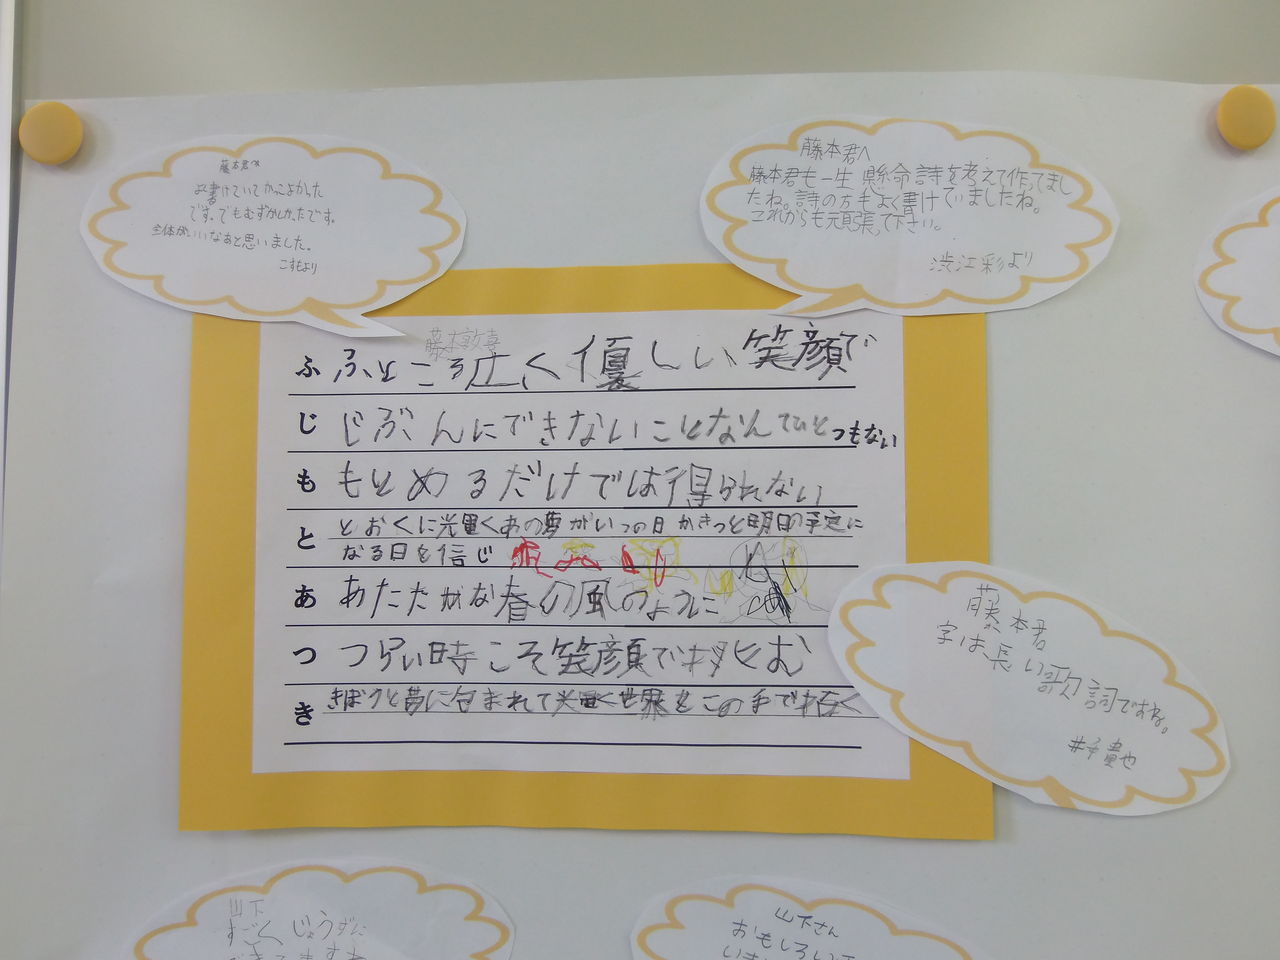 藤本君へ
よく書けていてかっこよかった
です。でもむずかしかったです。
全体がいいなあと思いました。
こすもより
藤本君へ
藤本君も一生懸命詩を考えて作ってまし
たね。詩の方もよく書けていましたね。
これからも元頑張って下さい。
渋江彩より
藤本敦喜
ふ ふところ広く優しい笑顔で
じ じぶんにできないことなんてひとつもない
も もとめるだけでは得られない
と とおくに光輝くあの夢がいつの日かきっと明日の予定に
なる日を信じ
あ あたたかな春の風のように
つ つらい時こそ笑顔で
き きぼうと夢に包まれて光輝く世界をこの手で
藤本君
字は長い歌詞ですね。
貴也
山下
すごくじょうずに
できてますね
山下さん
おもしろい